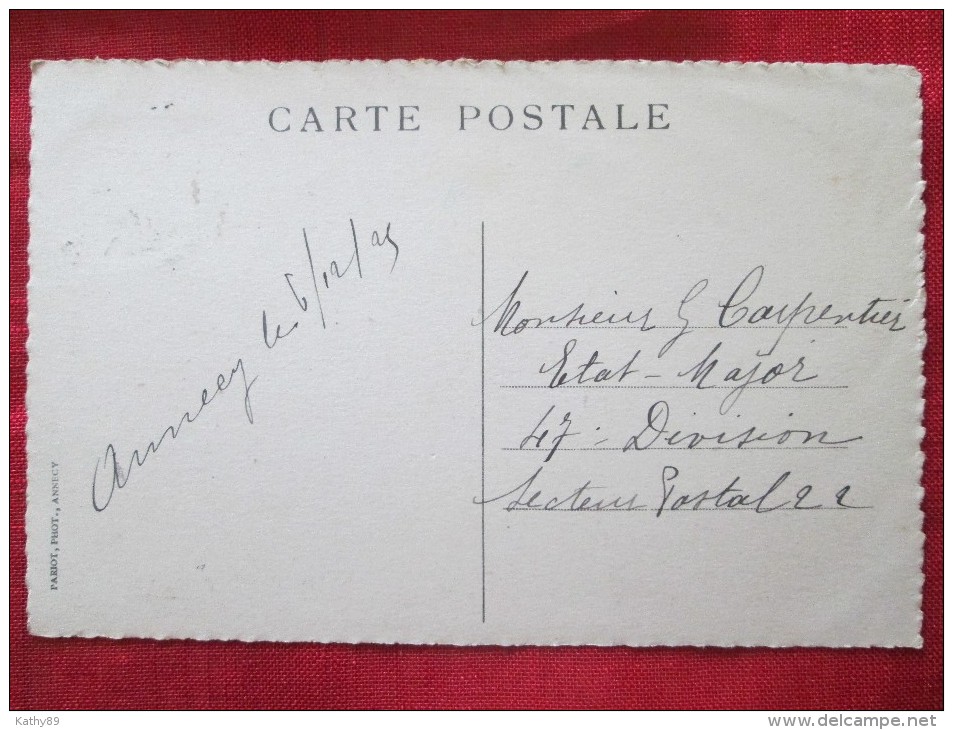 CARTE POSTALE
Annecy le 6/12/25
Monsieur G Carpentier
Etat-Major
47 - Division
Secteur Postal 22
PARIOT, PHOT., ANNECY
Kathy89
www.delcampe.net